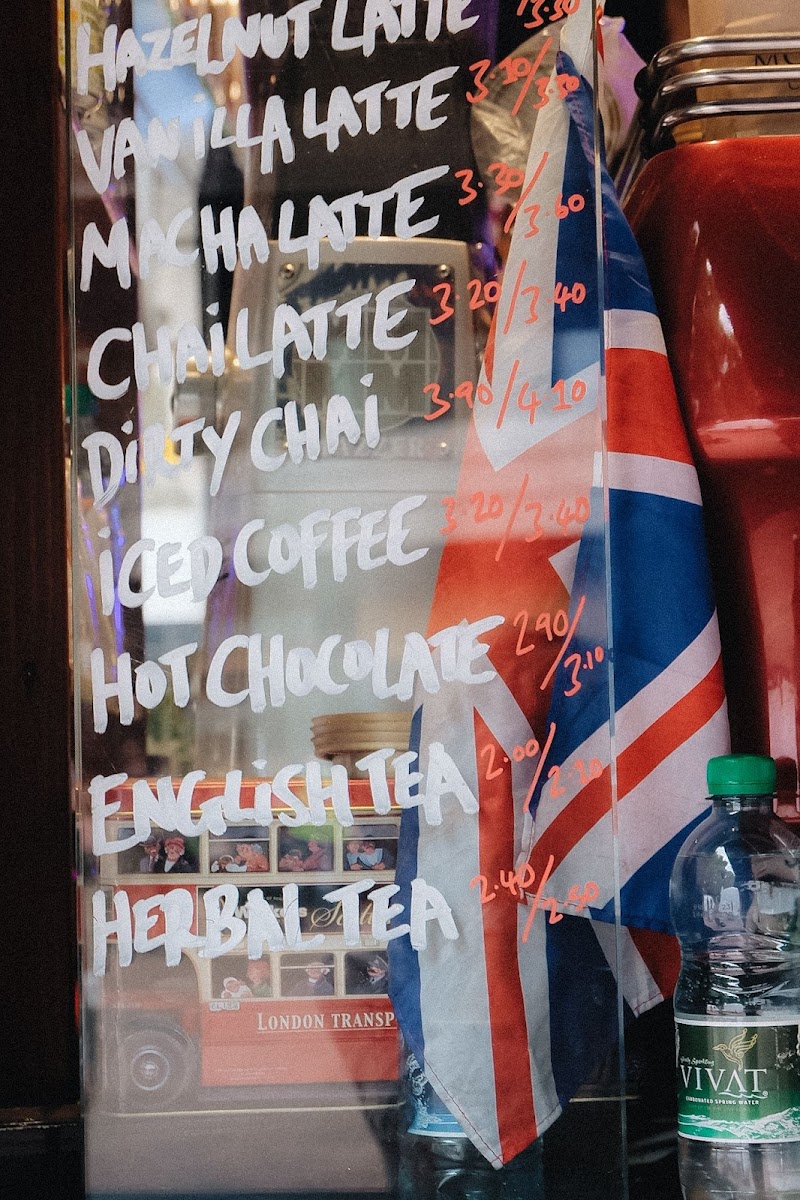 HAZELNUT LATTE 3.30
VANILLA LATTE 3.30/3.50
MACHA LATTE 3.30/3.60
CHAI LATTE 3.20/3.40
DIRTY CHAI 3.90/4.10
ICED COFFEE 3.20/3.40
HOT CHOCOLATE 290/3.10
ENGLISH TEA 2.00/2.20
HERBAL TEA 2.40/2.50
LONDON TRANSP
VIVAT
CARBONATED SPRING WATER